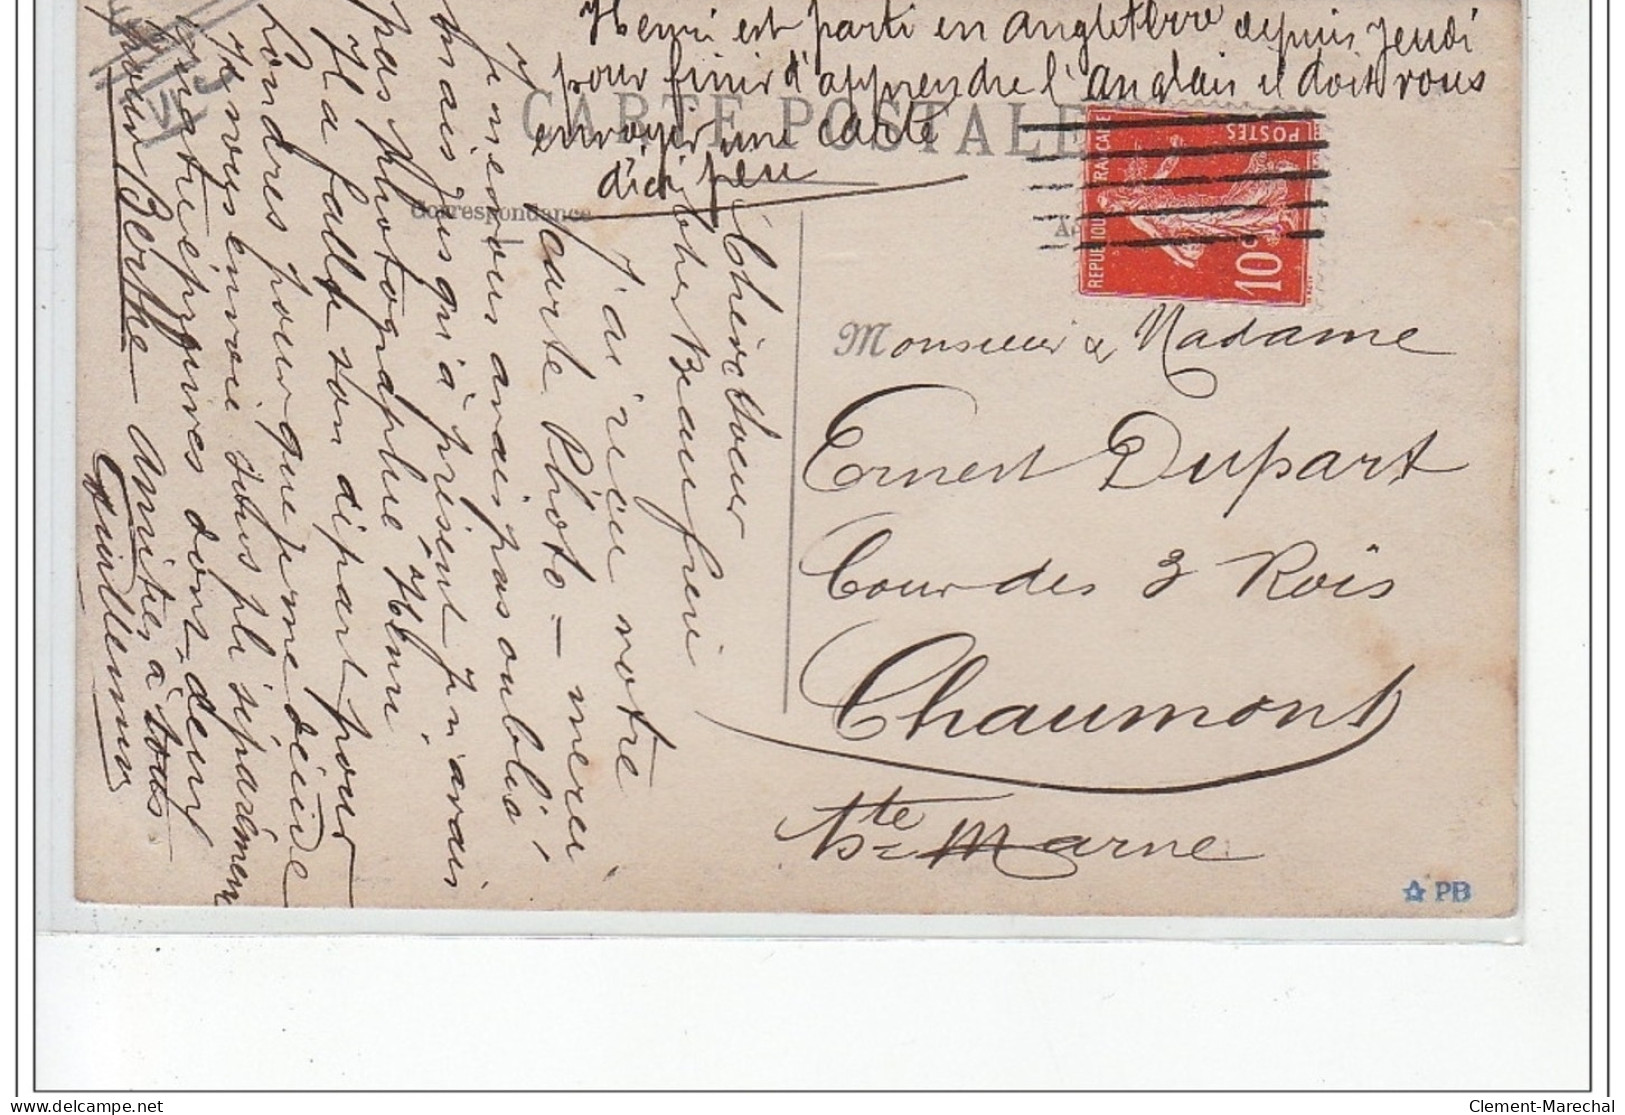 Henri est parti en angleterre depuis Jeudi
pour finir d'apprendre l'anglais il doit vous
envoyer une carte
d'ici peu
CARTE POSTALE
Correspondance
REPUBLIQUE FRANÇAISE
POSTES
10c
Monsieur & Madame
Ernest Dupart
Cour des 3 Rois
Chaumont
Hte Marne
PB
Chère Soeur
& cher Beau frère
J'ai reçu votre
carte Photo = merci
Je ne vous avais pas oublié
mais jusqu'à présent je n'avais
pas photographié Henri.
Il a fallu son départ pour
Londres pour que je me décide
Je vous envoie sous pli séparément
quatre épreuves dont deux
pour Berthe Amitiés à tous
Guillemin
Clement-Marechal